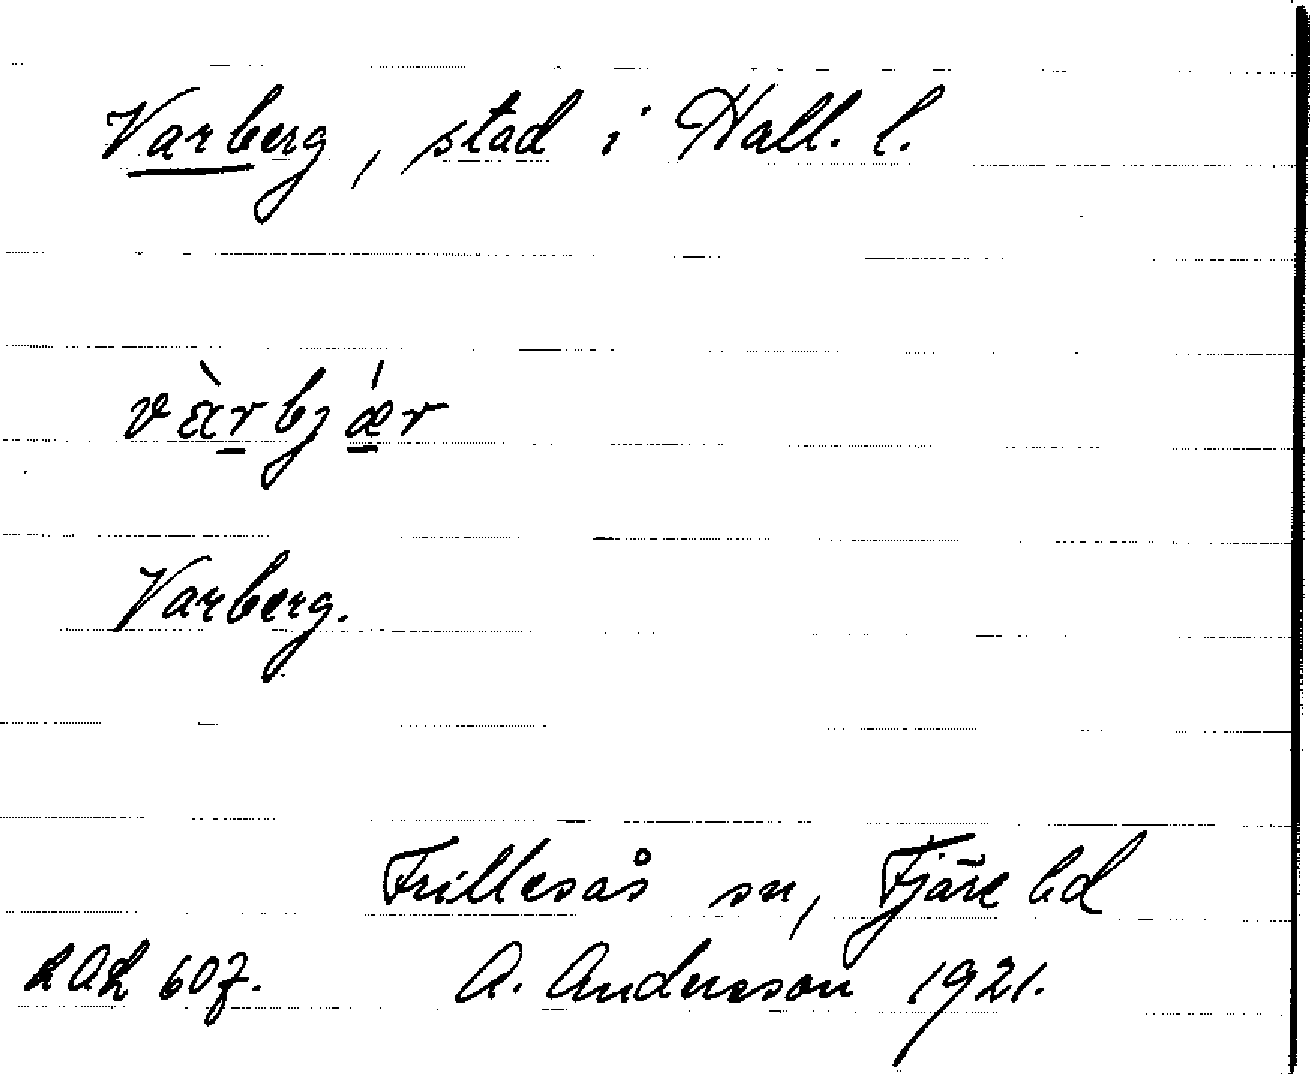 Varberg, stad i Hall. l.
vàrbjǽr
Varberg.
Frillesås sn, Fjäre hd
A. Andersson 1921.